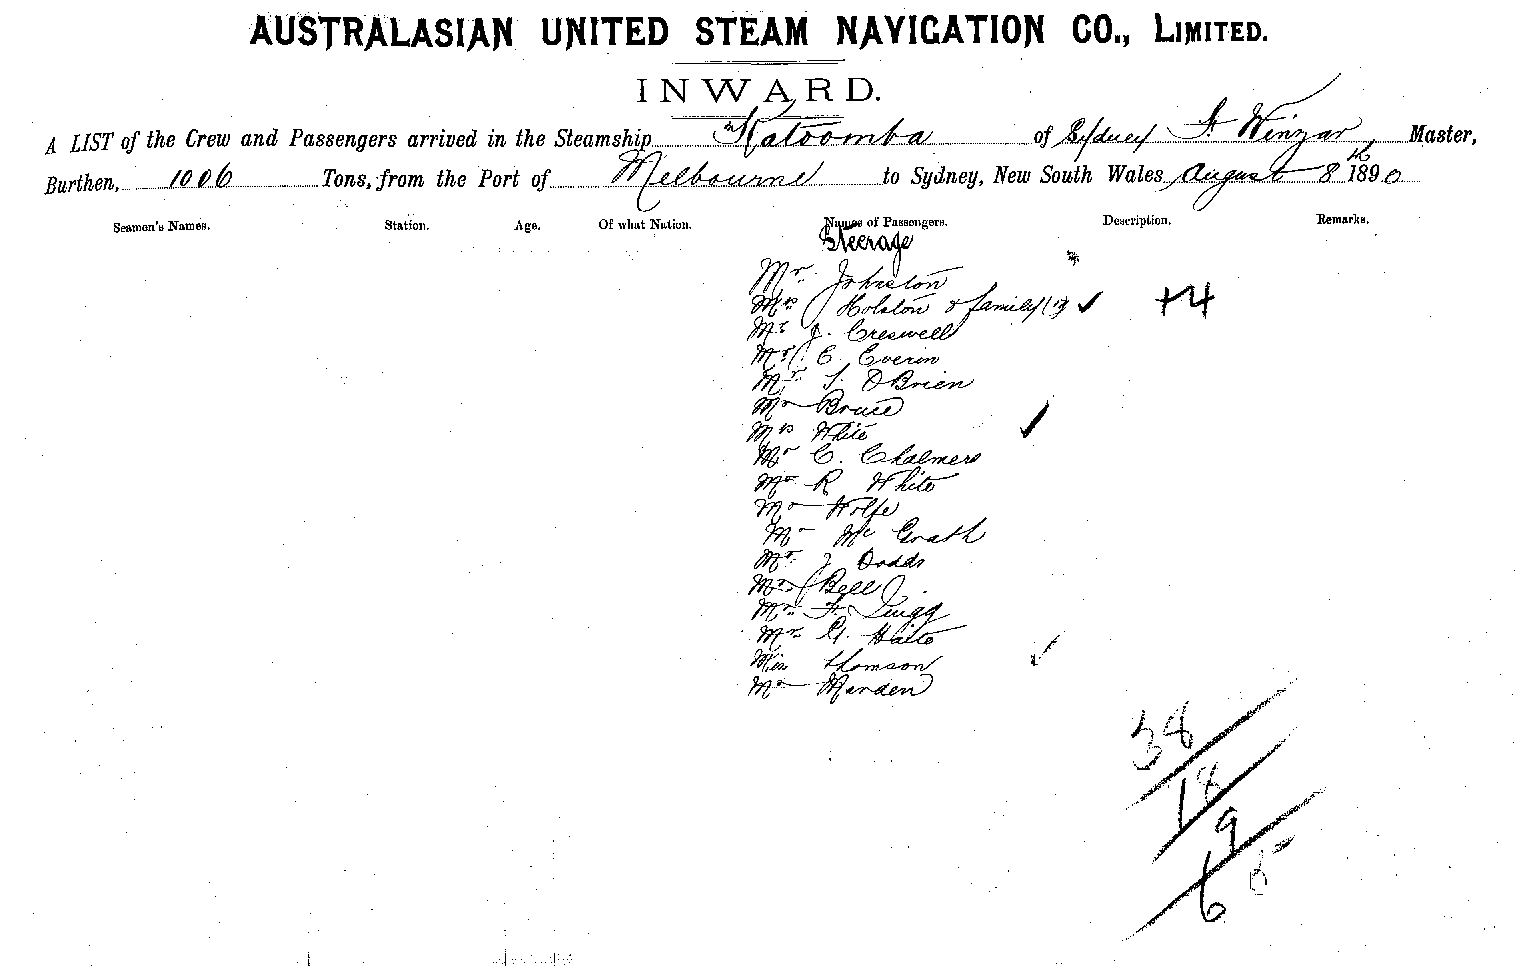 AUSTRALASIAN UNITED STEAM NAVIGATION CO., LIMITED.
INWARD.
A LIST of the Crew and Passengers arrived in the Steamship Katoomba of Sydney F. Winzar Master,
Burthen, 1006 Tons, from the Port of Melbourne to Sydney, New South Wales August 8th 1890
Seamen's Names. Station. Age. Of what Nation. Names of Passengers. Description. Remarks.
Steerage
Mr Johnston
Mrs Holston & family ✓ +4
Mr J. Creswell
Mr C
Mr T. OBrien
Mr Bruce
Mrs White ✓
Mr C. Chalmers
Mr R White
Mr Wolfe
Mr McGrath
Mr J Dodds
Bell
Mr F.
Mr G.
Miss Thomson ✓
Mr Marden
38
18
9
6